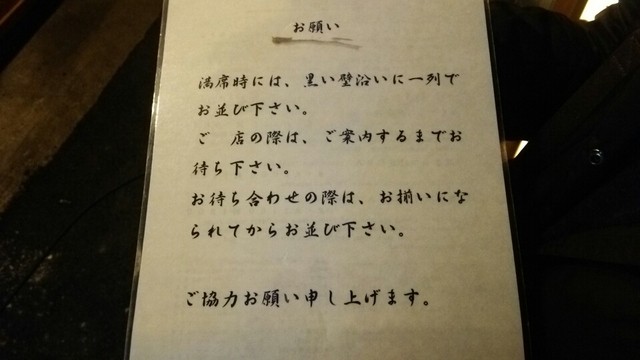 お願い
満席時には、黒い壁沿いに一列で
お並び下さい。
ご 店の際は、ご案内するまでお
待ち下さい。
お待ち合わせの際は、お揃いにな
られてからお並び下さい。
ご協力お願い申し上げます。